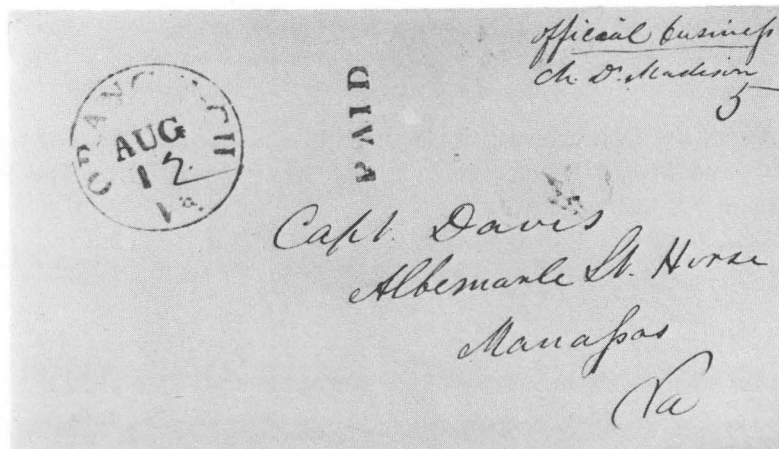 official business
Ch. D. Madison
5
PAID
ORANGE C H
AUG
12
Va.
Capt. Davis
Albemarle Lt. Horse
Manassas
Va